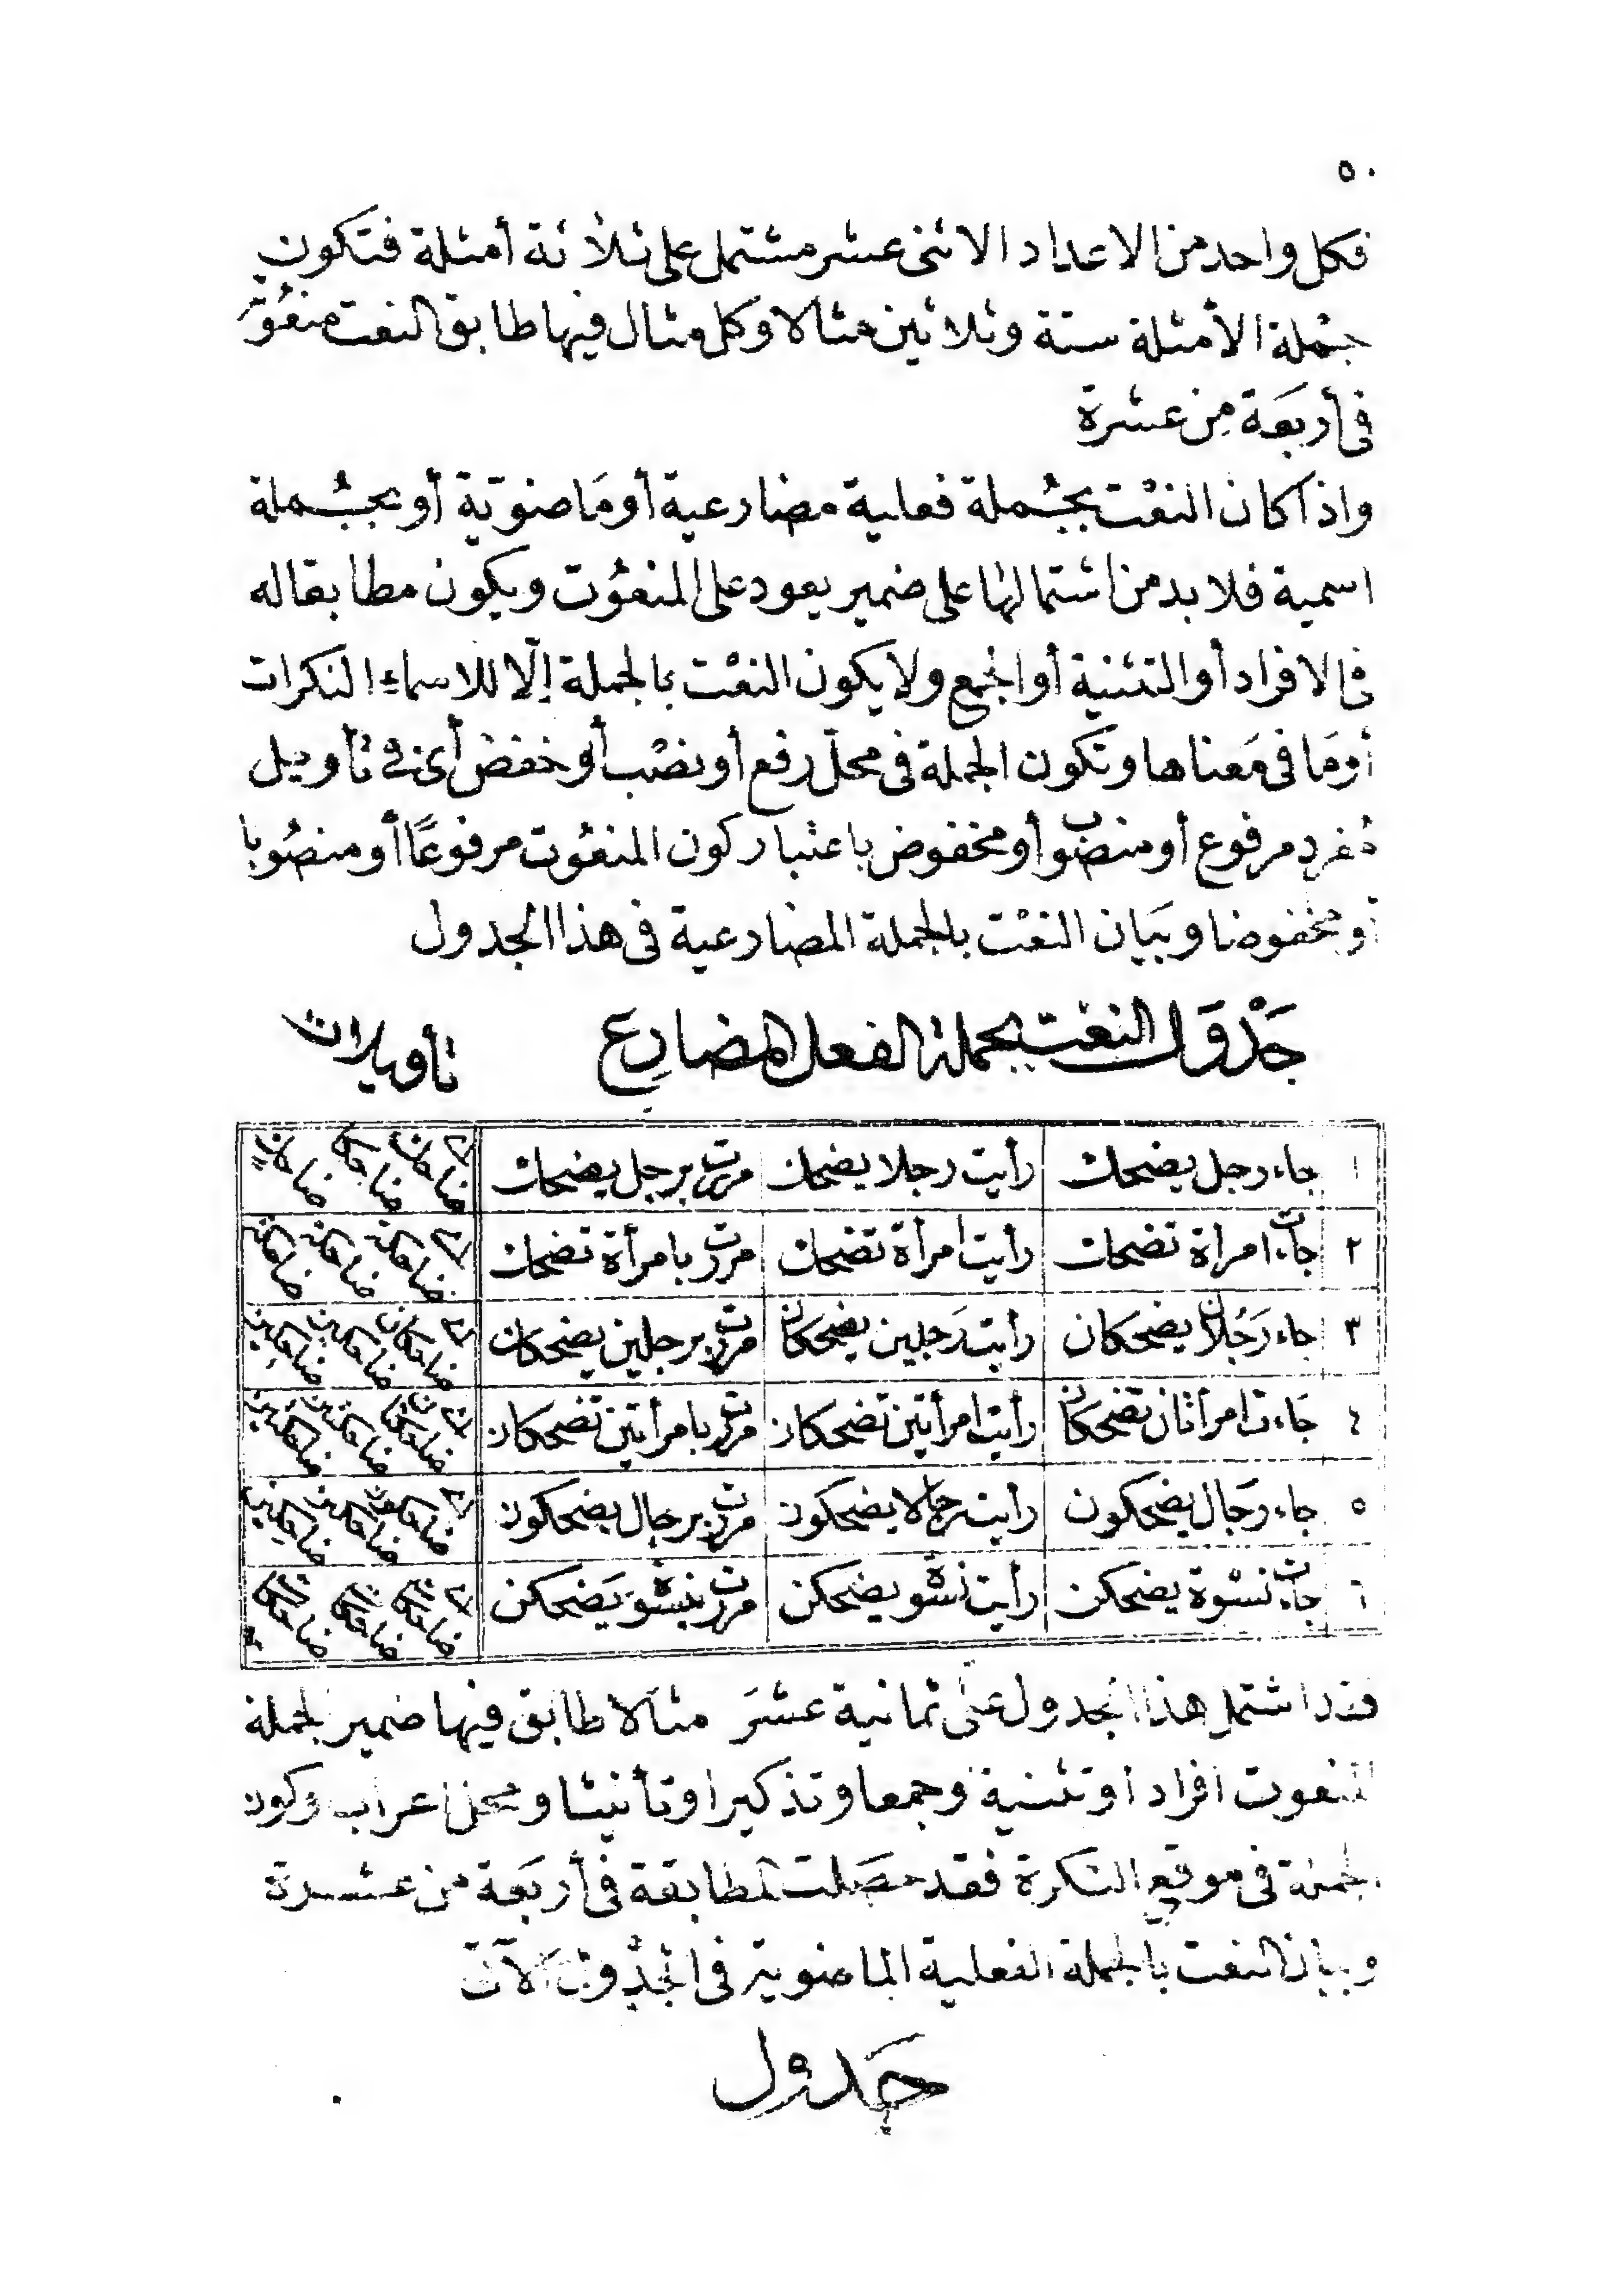 ٥٠
فكل واحد من الاعداد الاثنى عشر مشتمل على ثلاثة أمثلة فتكون
جُملة الأمثلة ستة وثلاثين مثالا وكل مثال فيها طابق النعت منعُوتَه
فى أربَعَة مِن عشرة
واذا كان النعْت بجُملة فعلية مضارعية أو مَاضوّية أو بجُملة
اسمية فلا بد من اشتمالها على ضمير يعود على المنعُوت ويكون مطابقا له
فى الافراد أو التثنية أو الجمع ولا يكون النعْت بالجملة إلّا للاسماء النكرات
أومَا فى مَعناها وتكون الجملة فى محلّ رفع أو نصْب أو خفض أى فى تأويل
مُفرد مرفوع أو منصُوب أو مخفوض باعتبار كون المنعُوت مرفوعًا أو منصُوبا
أو مخفوضا وبيَان النعْت بالجملة المضارعية فى هذا الجدول
جَدْوَل النعْت بجملة الفعل المضارع تأويلات
١ جاء رجل يضحك رأيت رجلا يضحك مررت برجل يضحك ضاحك ضاحكا ضاحك
٢ جاءت امرأة تضحك رأيت امرأة تضحك مررت بامرأة تضحك ضاحكة ضاحكة ضاحكة
٣ جاء رَجُلان يضحكان رأيت رَجلين يضحكان مررت برجلين يضحكان ضاحكان ضاحكين ضاحكين
٤ جَاءت امرأتان تضحكان رأيت امرأتين تضحكان مررت بامرأتين تضحكان ضاحكتان ضاحكتين ضاحكتين
٥ جاء رجَال يضحكون رأيت رجالا يضحكون مررت برجال يضحكون ضاحكون ضاحكين ضاحكين
٦ جاءت نسْوة يضحكن رأيت نسْوة يضحكن مررت بنسْوة يَضحكن ضاحكات ضاحكات ضاحكات
فقد اشتمل هذا الجدول على ثمانية عشَرَ مثالا طابق فيها ضمير الجملة
المنعوت افرادا وتثنية وجمعا وتذكيرا وتأنيثا ومحل اعراب وكون
الجملة فى موقع النكرة فقد حصَلت المطابقة فى أربَعَة من عشرة
وبيان النعت بالجملة الفعلية الماضوية فى الجدْول الآتى
جَدول